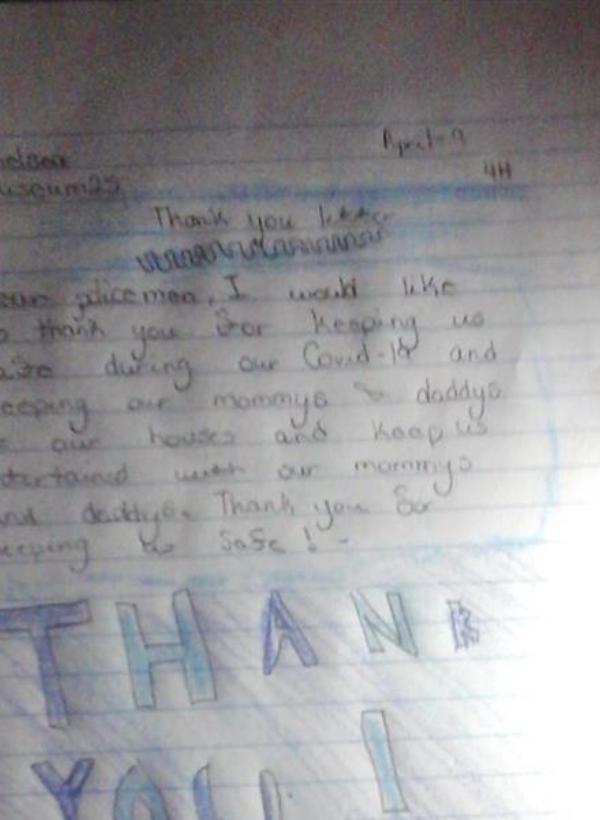 April-9
4H
Thank you letter
policeman, I would like
thank you for keeping us
during our Covid-19 and
eeping our mommys & daddys
our houses and keep us
tertained with our mommys
nd daddys. Thank you for
eeping us safe! -
THANK
YOU!